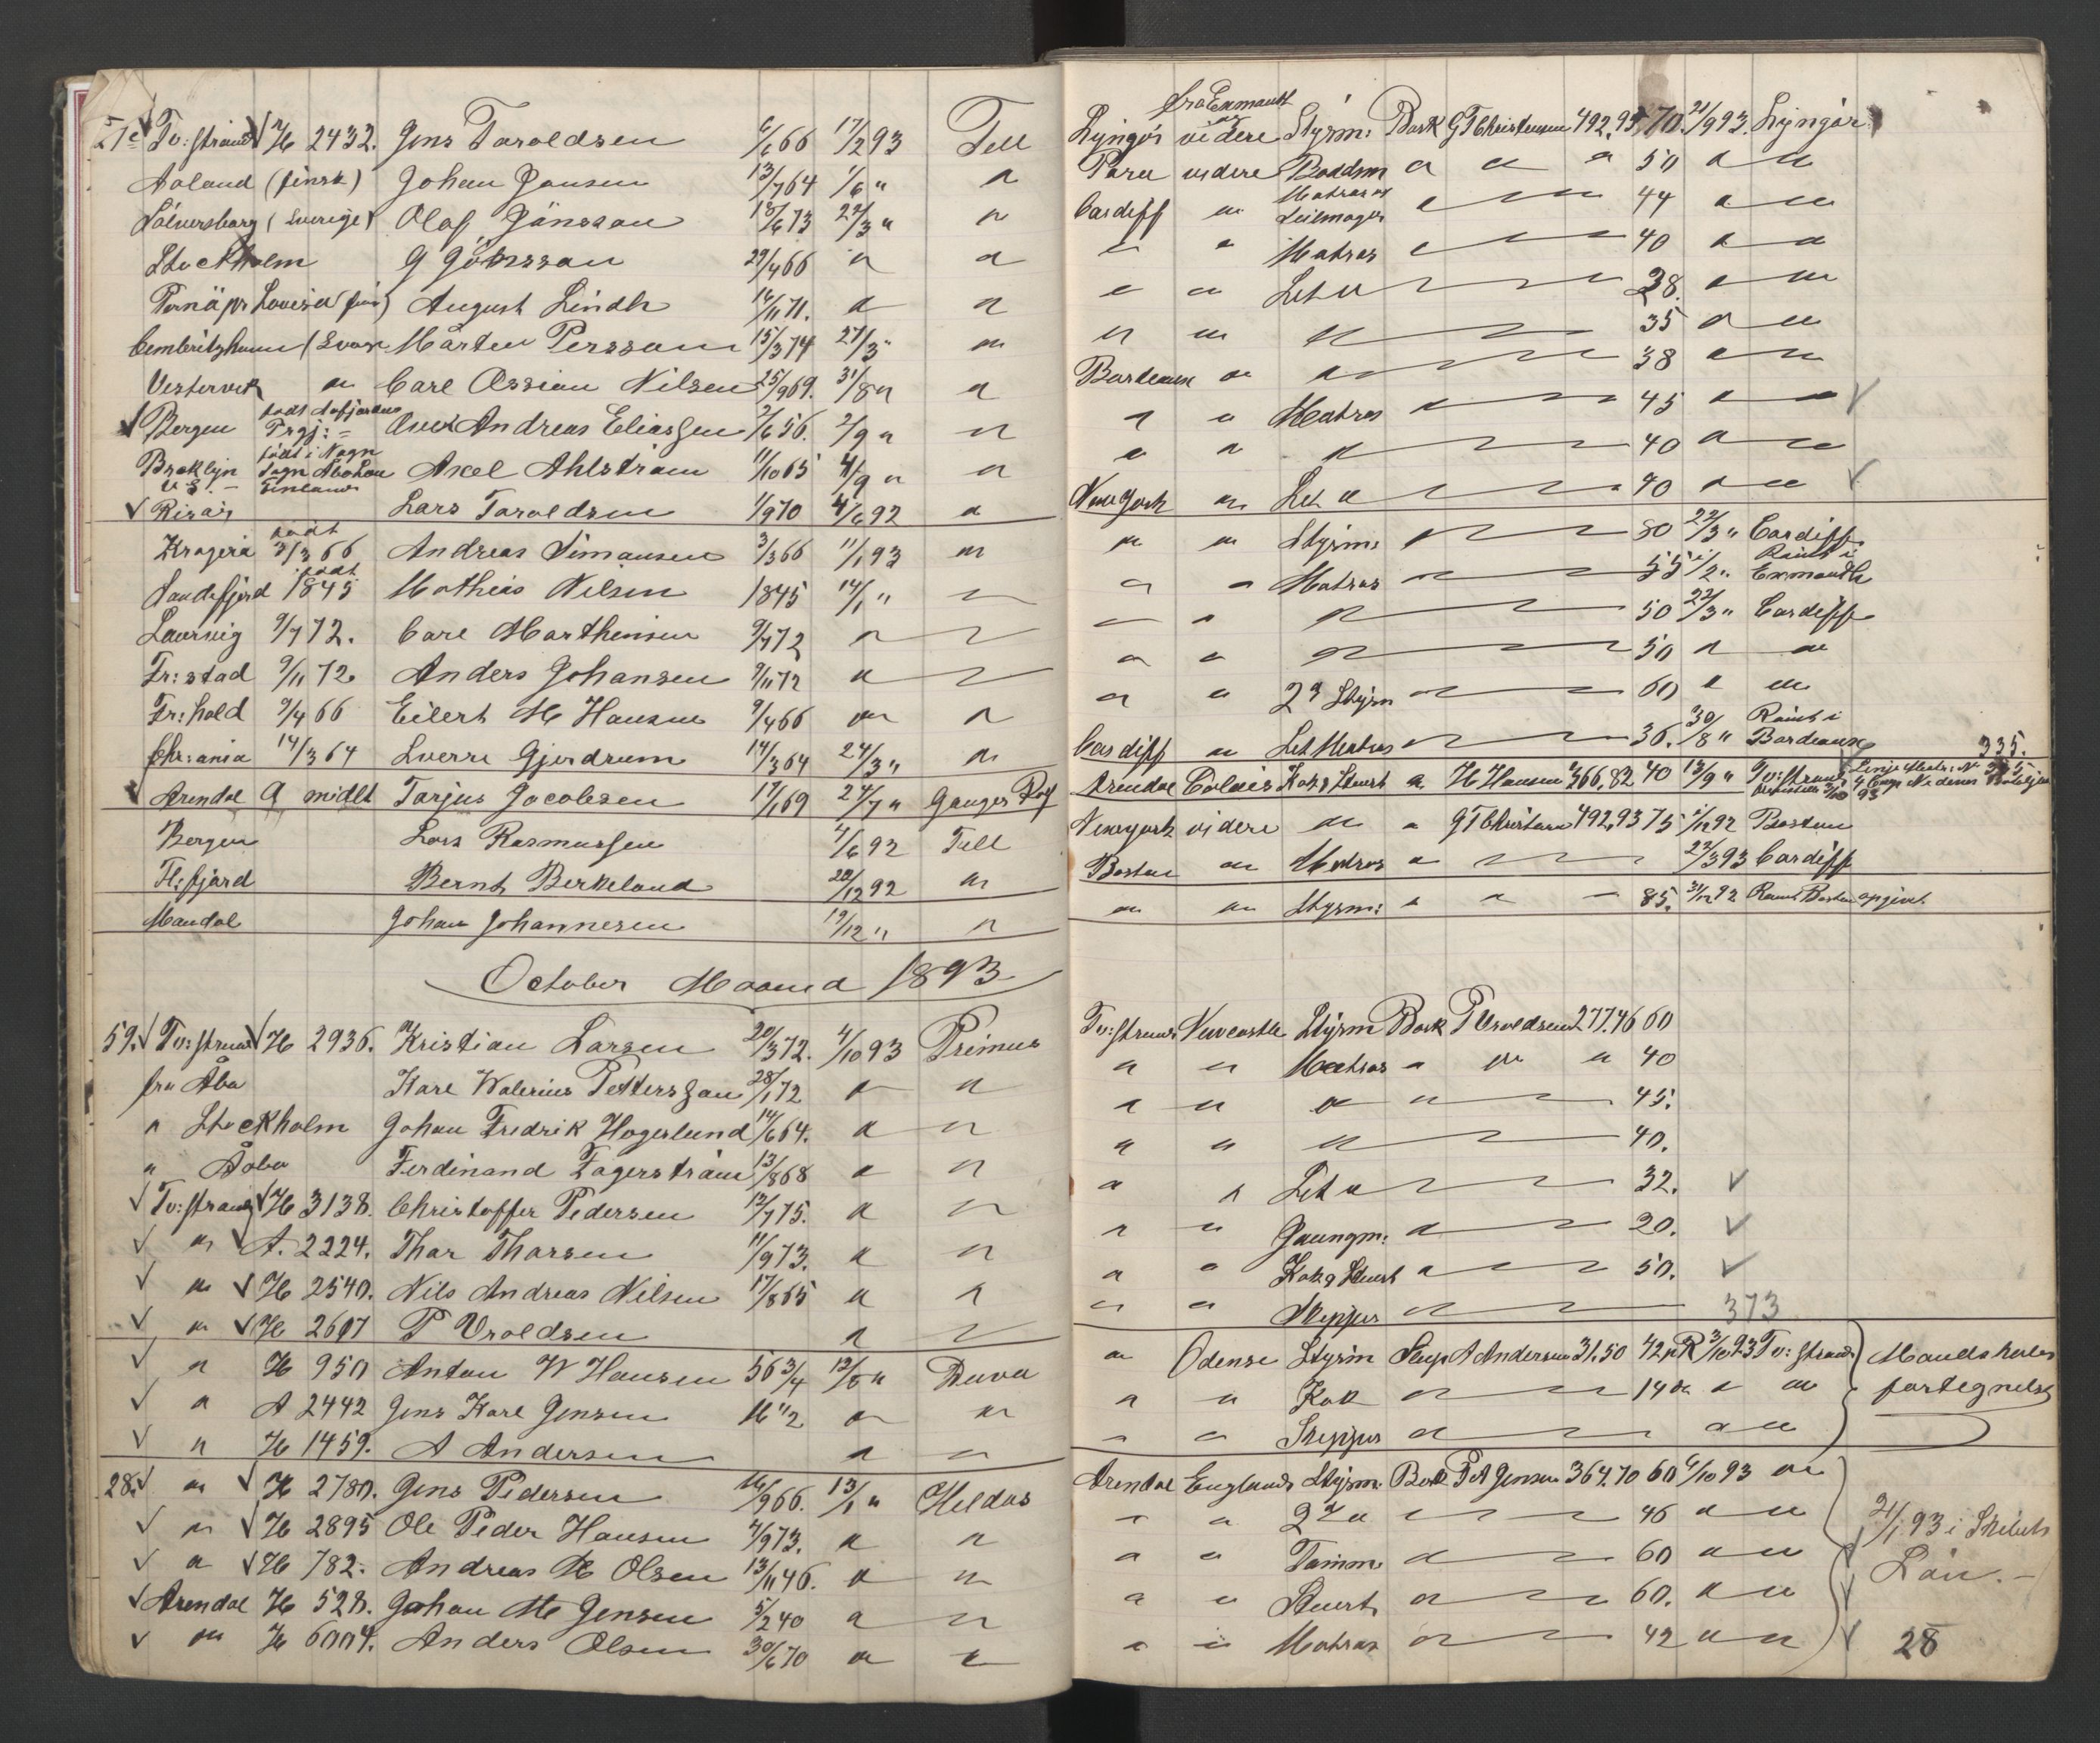 57c Tv: strand H 2432. Jens Taraldsen 6/1 66 17/2 93 Tell
Aaland (finsk) Johan Jansen 13/7 64 1/6 " "
Sölversborg (Sverige) Olaf Jönsson 18/6 73 22/3 " "
Stockholm G Görsson 29/4 66 " "
Lovisa August Lindh 16/11 71. " "
Mårten Persson 15/3 74 27/3 " "
Vestervik " Carl Ossian Nilsen 25/9 69. 31/8 " "
Bergen Andreas Eliassen 2/6 56. 2/9 " "
Broklyn Axel Ahlström 11/10 65 4/9 " "
U.S. – Finland
Risör Lars Taraldsen 1/9 70 4/6 92 "
født
Kragerö 3/3 66 Andreas Simonsen 3/3 66 11/1 93 "
født
Sandefjord 1845 Mathias Nilsen 1845 14/1 " "
Laurvig 9/7 72. Carl Marthinsen 9/7 72 " "
Fr: stad 9/11 72 Anders Johansen 9/11 72 " "
Fr: hald 9/4 66 Eilert M Hansen 9/4 66 " "
Chr: ania 14/3 64 Sverre Gjerdrum 14/3 64 24/3 " "
Arendal A midlt Tarjus Jacobsen 17/1 69 24/7 " Ganger Rolf
Bergen Lars Rasmussen 4/6 92 Tell
Fl: fjord Bernt Berkeland 28/12 92 "
Mandal Johan Johannesen 19/12 " "
October Maaned 1893
59. Tv: strand H 2936. Kristian Larsen 20/3 72. 4/10 93 Primus
fra Åbo Karl Walerius Pettersson 28/1 72 " "
" Stockholm Johan Fredrik Hogerlund 14/6 64. " "
" Åbo Ferdinand Fagerström 13/8 68 " "
Tv: strand H 3138. Christoffer Pedersen 12/7 75. " "
" A. 2224. Thor Thorsen 11/9 73. " "
" H 2540. Nils Andreas Nilsen 17/8 65 " "
" H 2697 P Vroldsen " "
" H 950 Anton W Hansen 56 3/4 12/5 " Duva
" A 2442 Jens Karl Jensen " "
" H 1459. A Andersen " "
28. " H 2780. Jens Pedersen 16/9 66. 13/1 " Heldos
" H 2895 Ole Peder Hansen 4/9 73. " "
" H 782. Andreas Olsen 13/11 46. " "
Arendal H 528. Johan M Jensen 5/2 40 " "
" H 6004. Anders Olsen 30/6 70 " "
fra Exmouth
Lyngör videre Styrm: Bark G T Christensen 492,93 70. 21/9 93. Lyngör
Para videre Baadsm " " " 50 " "
Cardiff " Matros og Seilmager " 44 " "
" " Matros " 40 " "
" " Let " 38. " "
" " " 35 " "
Bordeaux " " 38 " "
" " Matros " 45 " "
" " " 40 " "
New York " Let " 40 " "
" " Styrm: " 80 22/3 " Cardiff
" " Matros " 55 1/2 " Rømt i Exmouth
" " " 50 22/3 " Cardiff
" " " 50 " "
" " 2d Styrm " 60 " "
Cardiff " Let Matros " 36. 30/8 " Rømt i Bordeaux 335.
Arendal Calais Kok & Stuert " H Hansen 366,82 40 13/9 " Tv: strand
Newyork videre " " G T Christensen 492,93 75 1/12 92 Boston
Boston " Matros " 22/3 93 Cardiff
" " Styrm: " " " 85. 31/12 92 Rømt Boston opgivet
Tv: strand Newcastle Styrm Bark P Vroldsen 277.46 60
" " Matros " " " 40
" " " " 45.
" " " 40.
" " Let " 32.
" " Jungm: " 20.
" " Kok & Stuert " 50.
" " Skipper " 373
" Odense Styrm Slup A Andersen 31.50 42 3/10 93 Tv: strand Mandskabs
" " Kok " 14 " " fortegnelse
" " Skipper " " "
Arendal England Styrm. Bark P A Jensen 364.70 60 6/10 93 "
" " 2d " 46 " " 21/1 93 i Skibets
" " Tømm " 60 " " Lön. –
" " Stuert " 60. " "
" " Matros " 42 " " 28